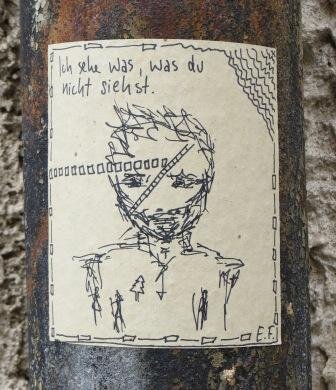 Ich sehe was, was du
nicht siehst.
E.F.